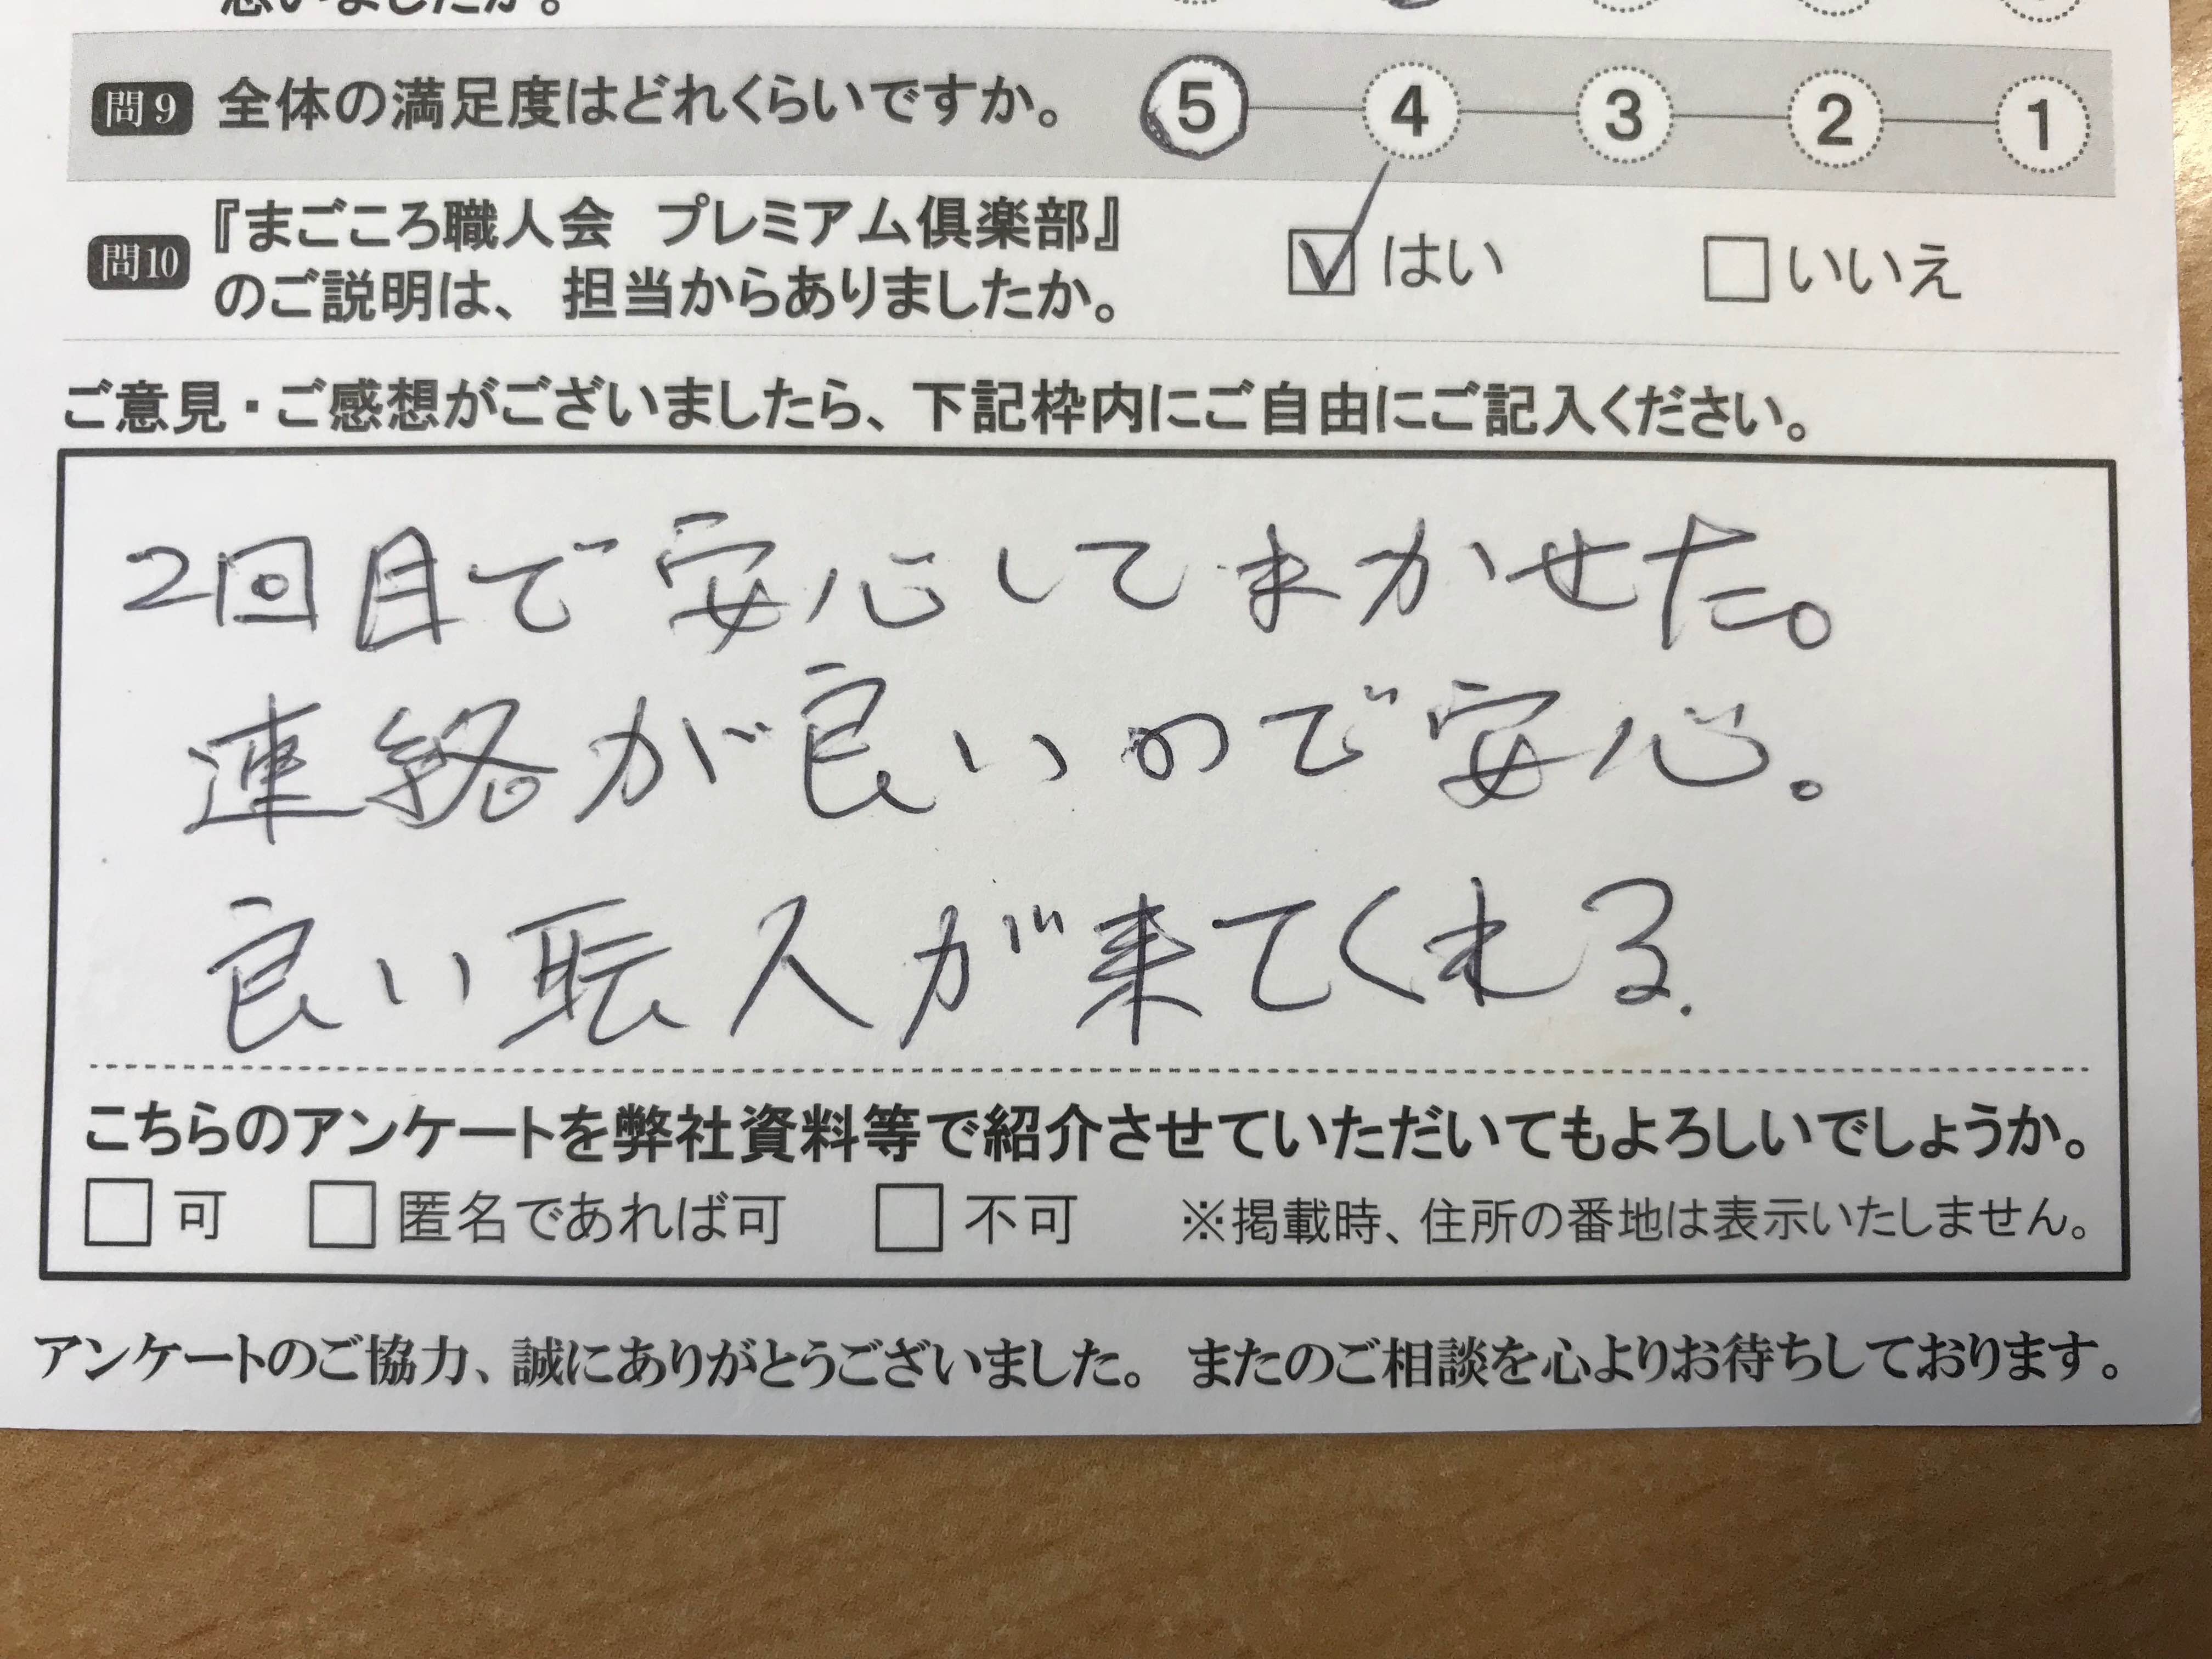 思いましたか。
問9 全体の満足度はどれくらいですか。 5 4 3 2 1
問10 『まごころ職人会 プレミアム倶楽部』
のご説明は、担当からありましたか。 はい いいえ
ご意見・ご感想がございましたら、下記枠内にご自由にご記入ください。
2回目で安心してまかせた。
連絡が良いので安心。
良い転人が来てくれる.
こちらのアンケートを弊社資料等で紹介させていただいてもよろしいでしょうか。
可 匿名であれば可 不可 ※掲載時、住所の番地は表示いたしません。
アンケートのご協力、誠にありがとうございました。またのご相談を心よりお待ちしております。